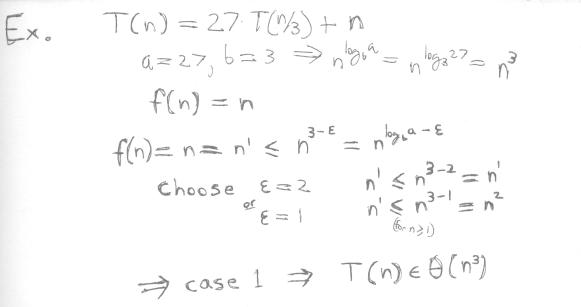 Ex. T(n) = 27 T(n/3) + n
a = 27, b = 3 ⇒ n^{log_b a} = n^{log_3 27} = n^3
f(n) = n
f(n) = n = n^1 ≤ n^{3-ε} = n^{log_b a - ε}
choose ε = 2 n^1 ≤ n^{3-2} = n^1
or ε = 1 n^1 ≤ n^{3-1} = n^2
(for n≥1)
⇒ case 1 ⇒ T(n) ∈ Θ(n^3)